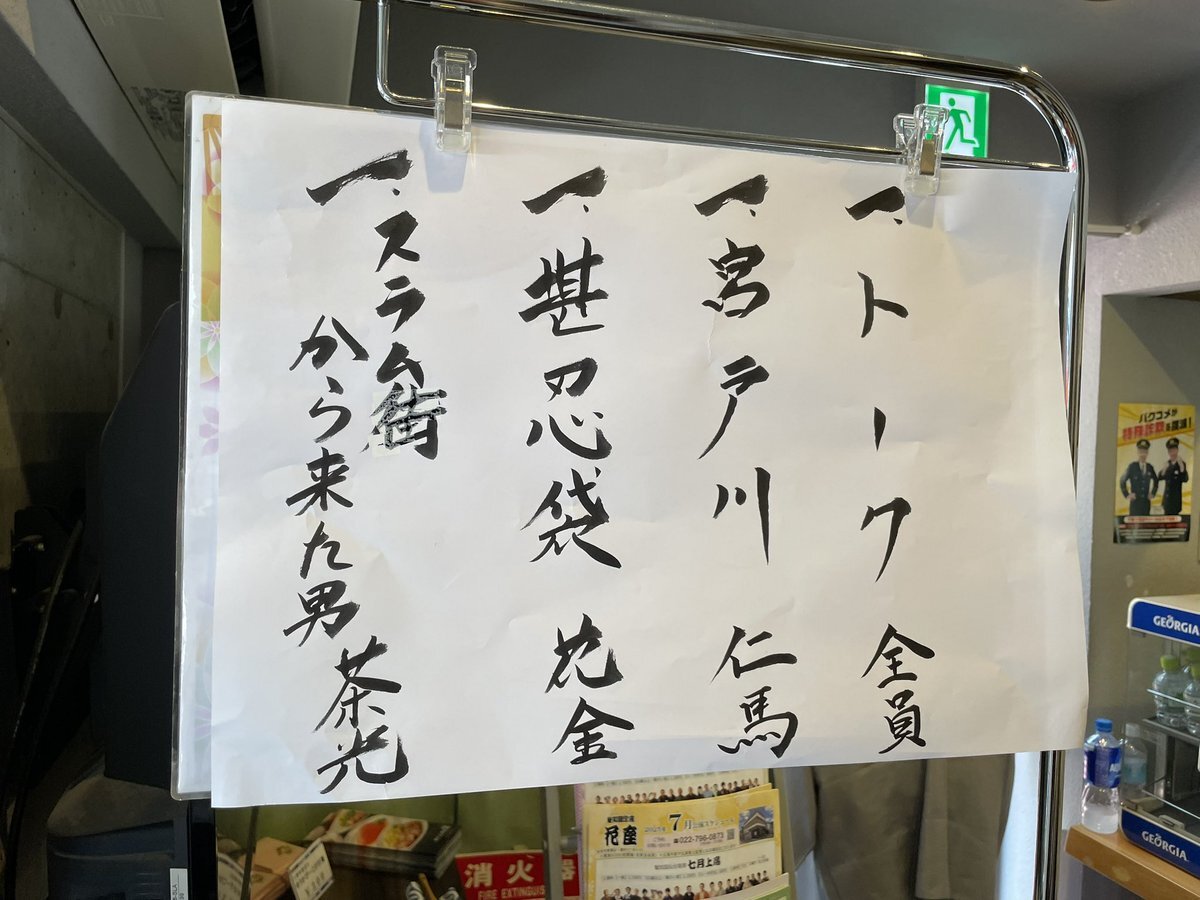 一、トーク 全員
一、宮戸川 仁馬
一、堪忍袋 花金
一、スラム街
から来た男 茶光
パクコメが
特殊詐欺を撲滅!
GEORGIA
GEORGIA
消火器
FIRE EXTINGUIS
花座
7月
022-796-0873
七月上席